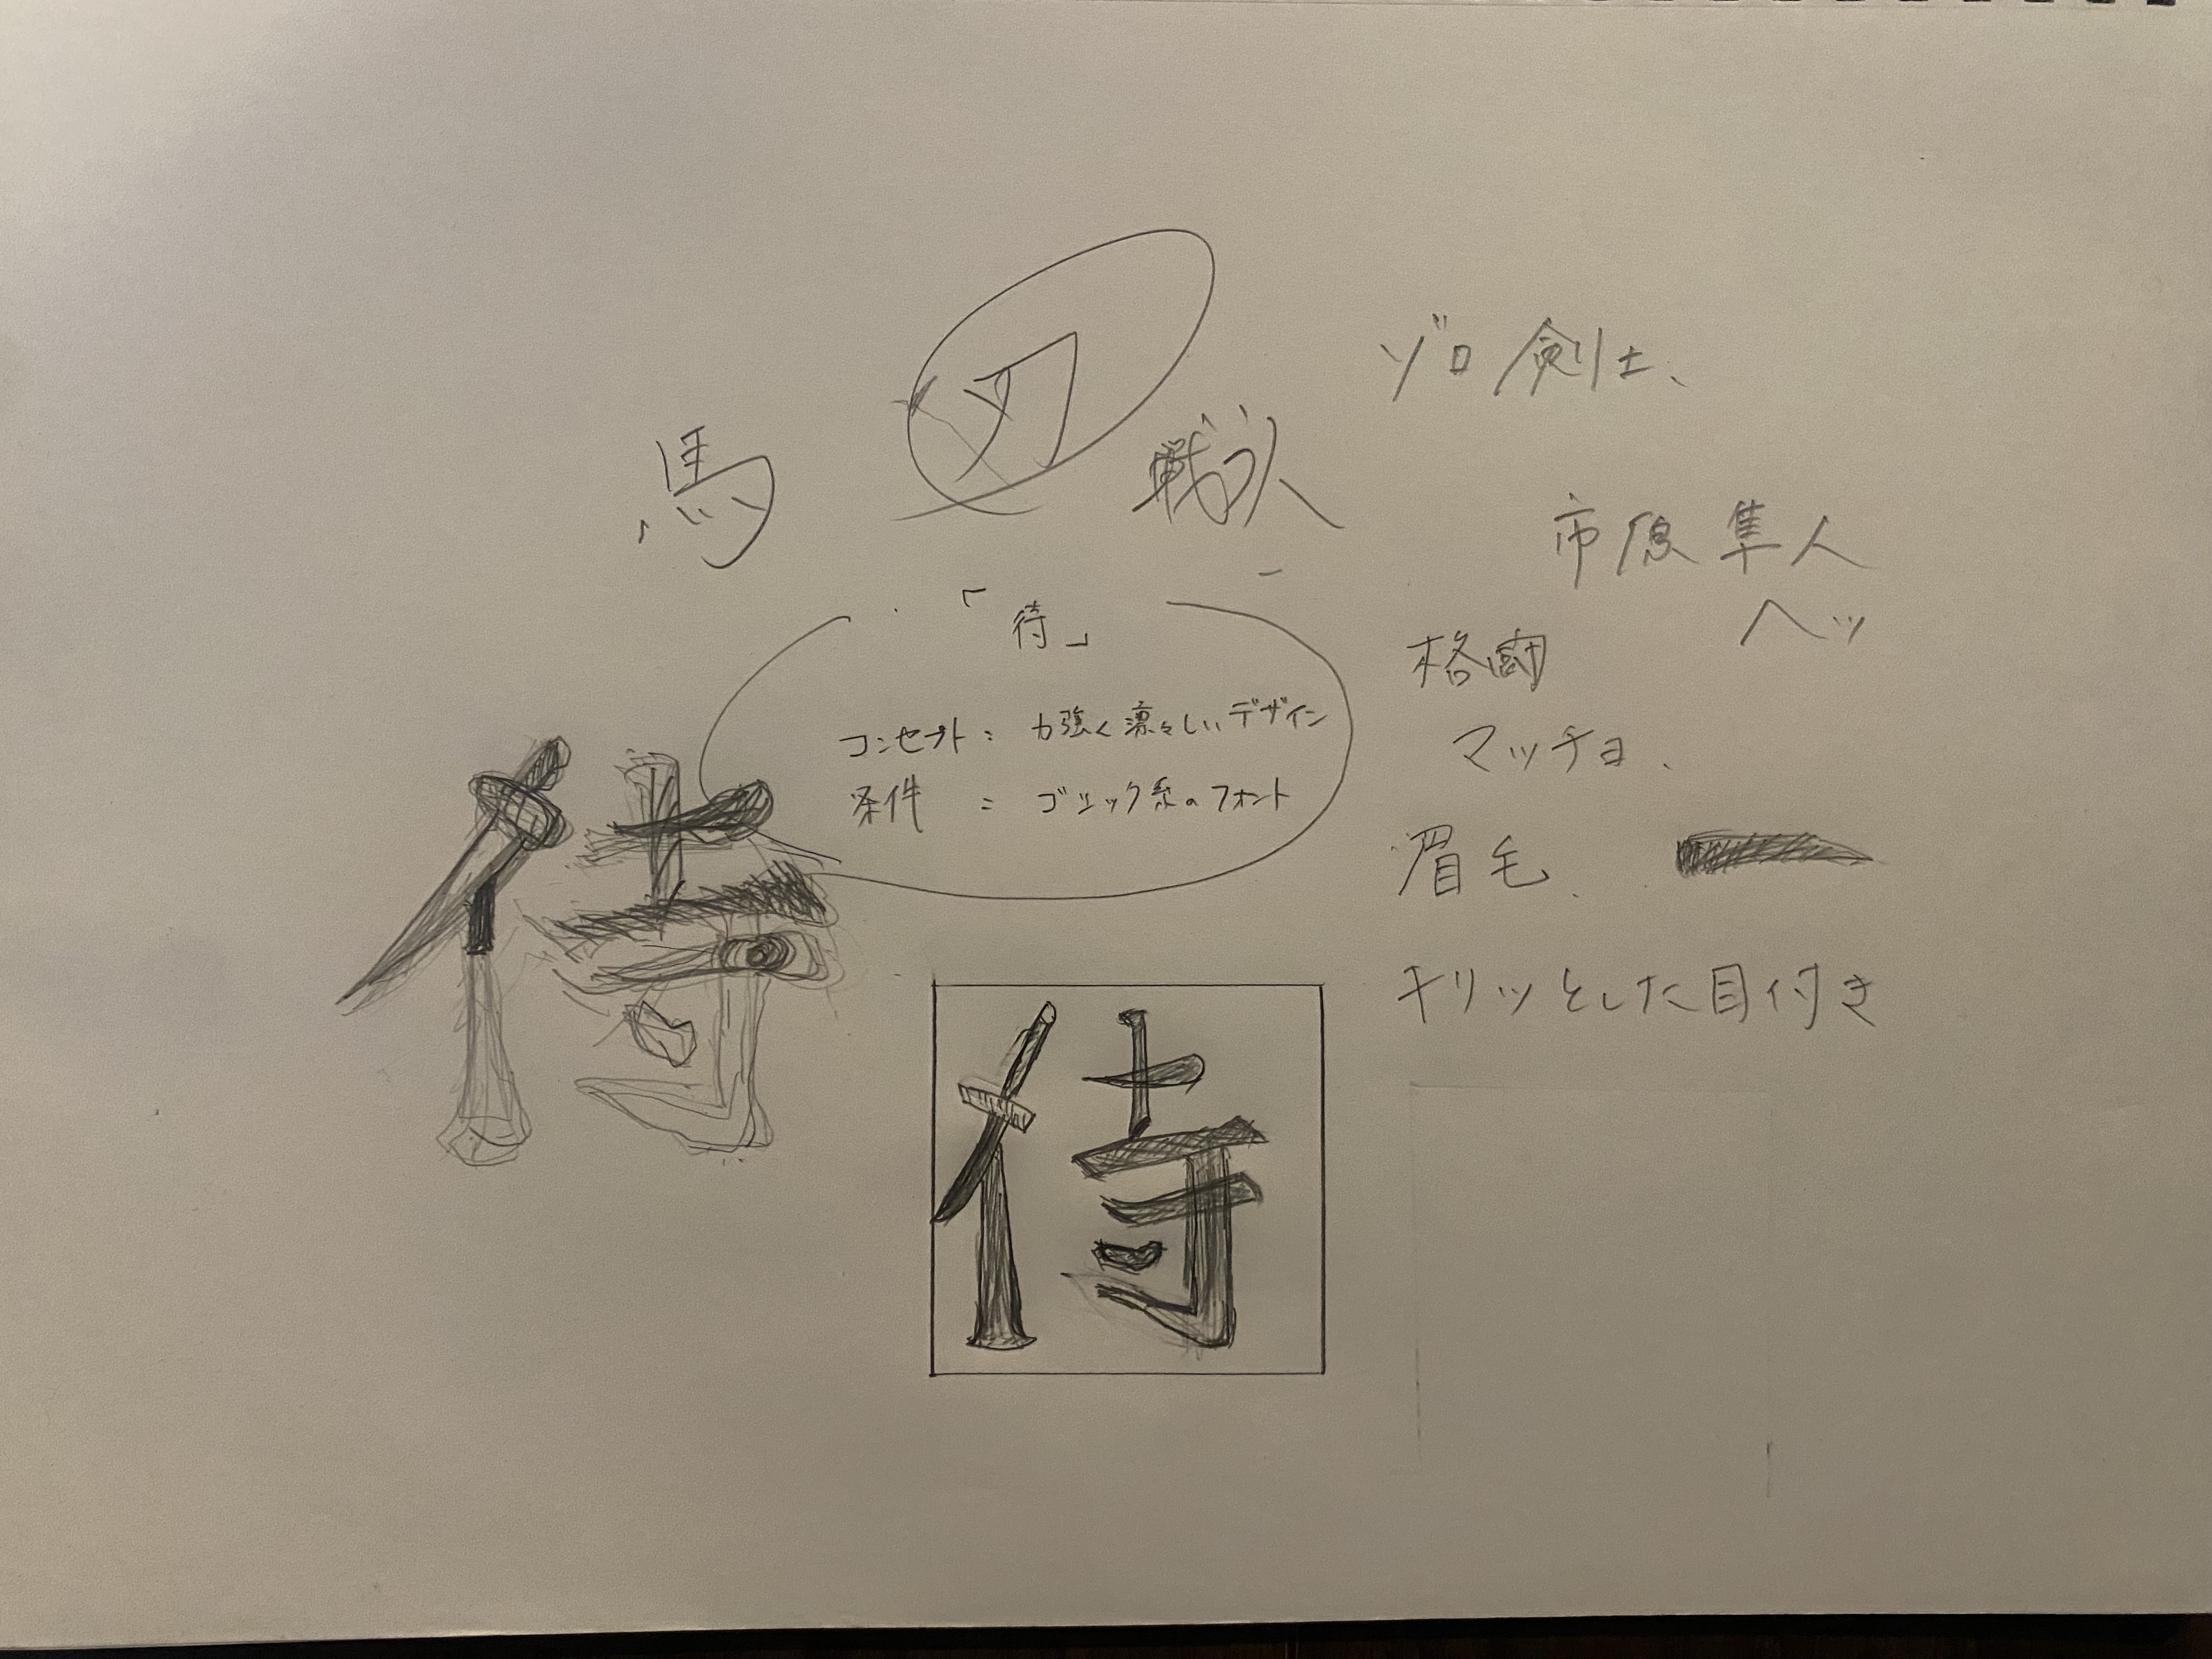 馬 刀 戦う人
ゾロ 剣士、
市原隼人
ヘッ
格闘
マッチョ、
眉毛、
キリッとした目付き
「侍」
コンセプト： 力強く凛々しいデザイン
条件 ： ゴシック系のフォント
侍
侍